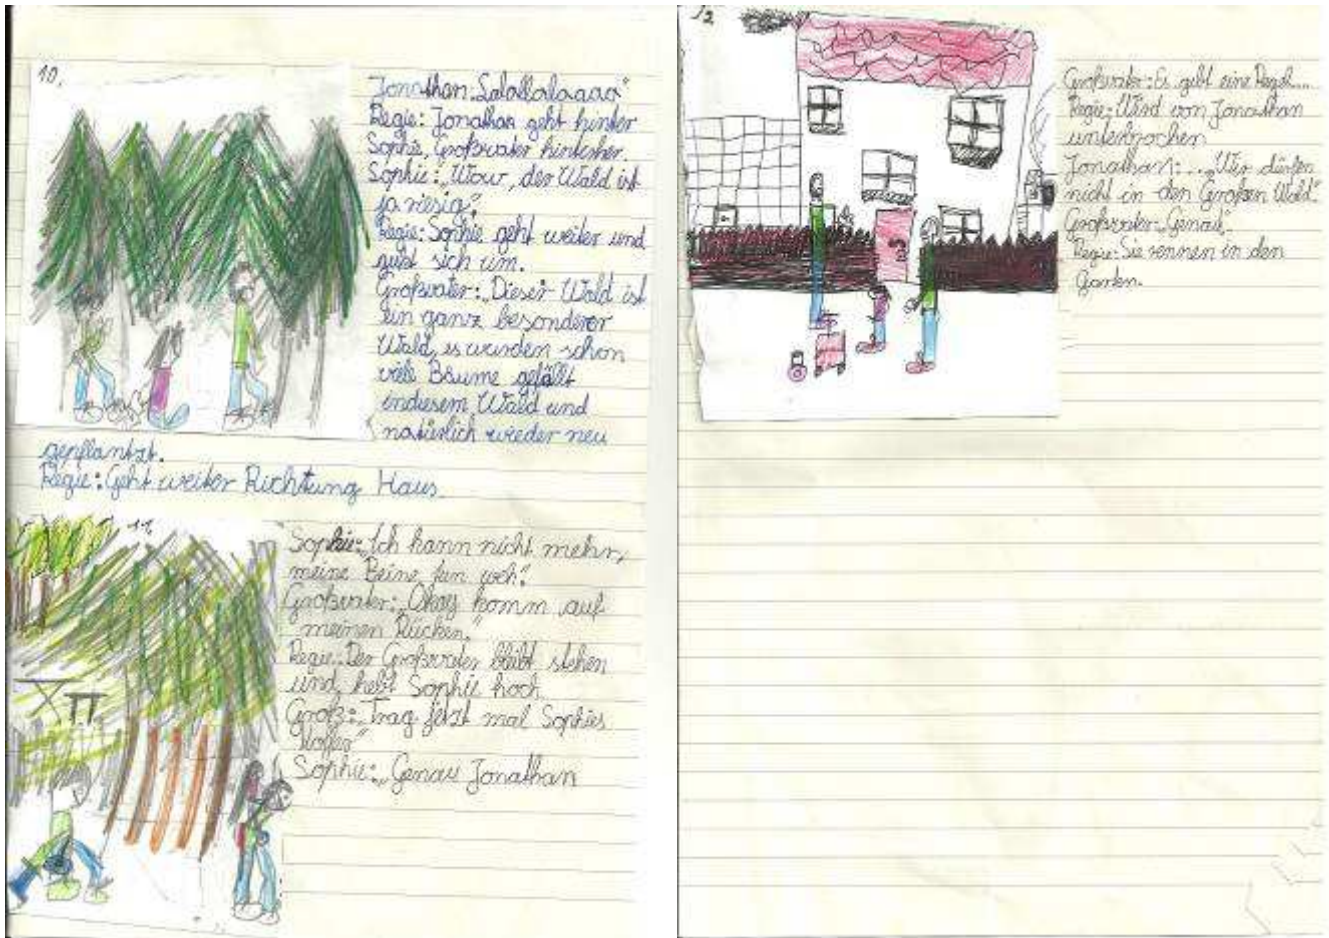 10.
Jonathan: „Lalallalaaaa"
Regie: Jonathan geht hinter
Sophie, Großvater hinterher.
Sophie: „Wow, der Wald ist
ja riesig."
Regie: Sophie geht weiter und
gukt sich um.
Großvater: „Dieser Wald ist
ein ganz besonderer
Wald, es wurden schon
viele Bäume gefällt
indiesem Wald und
natürlich wieder neu
gepflantzt.
Regie: Geht weiter Richtung Haus.
11.
Sophie: „Ich kann nicht mehr,
meine Beine tun weh".
Großvater: „Okay komm auf
meinen Rücken."
Regie: Der Großvater bleibt stehen
und hebt Sophie hoch
Groß: „Trag jetzt mal Sophies
Koffer"
Sophie: „Genau Jonathan
12
Großvater: Es gibt eine Regel....
Regie: Wird von Jonathan
unterbrochen
Jonathan: ... „Wir dürfen
nicht in den Großen Wald".
Großvater: „Genau".
Regie: Sie rennen in den
Garten.